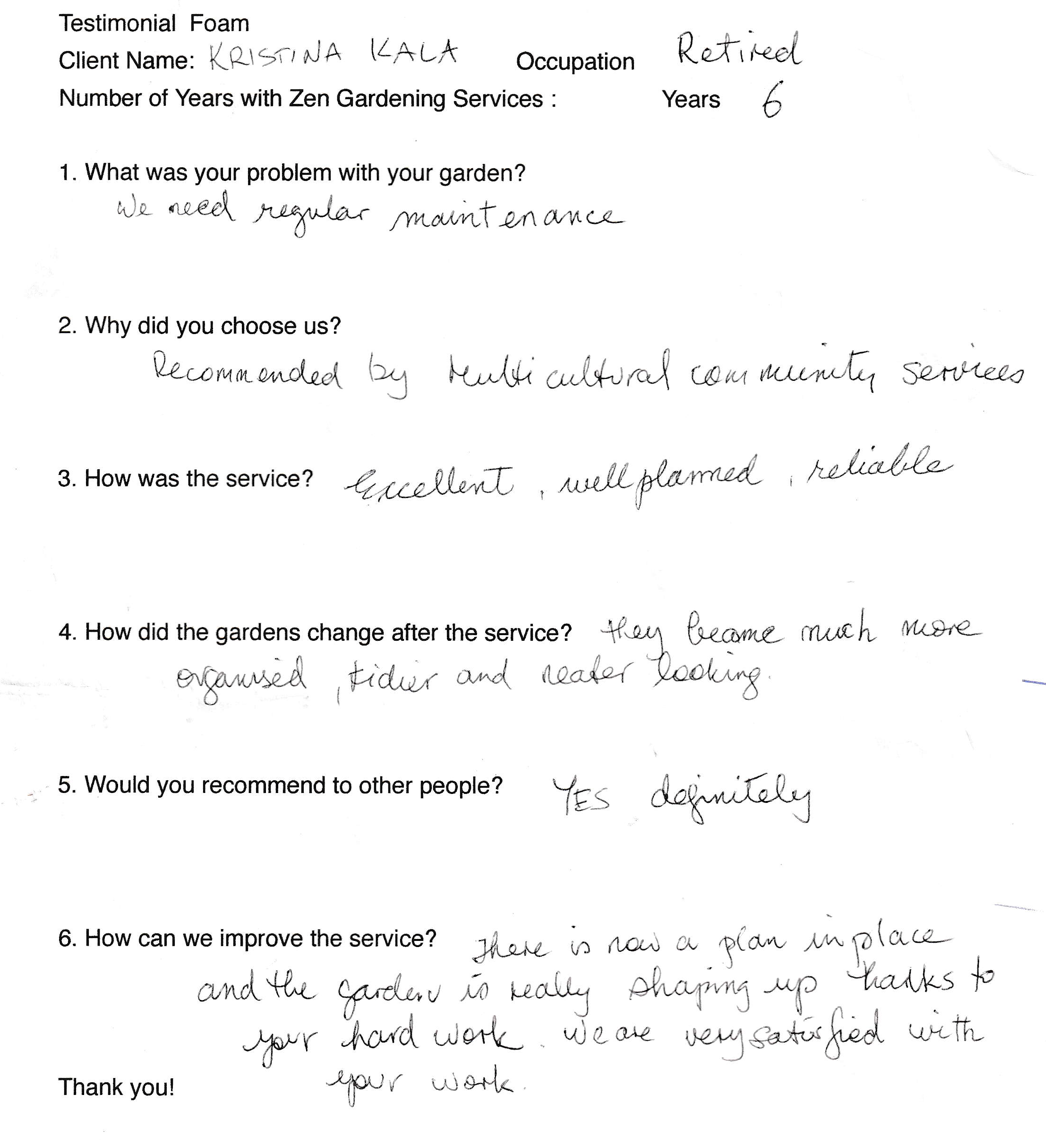 Testimonial Foam
Client Name: KRISTINA KALA Occupation Retired
Number of Years with Zen Gardening Services : Years 6
1. What was your problem with your garden?
We need regular maintenance
2. Why did you choose us?
Recommended by Multicultural community services
3. How was the service? Excellent, well planned, reliable
4. How did the gardens change after the service? they became much more
organised, tidier and neater looking.
5. Would you recommend to other people? YES definitely
6. How can we improve the service? There is now a plan in place
and the garden is really shaping up thanks to
your hard work. We are very satisfied with
Thank you! your work.